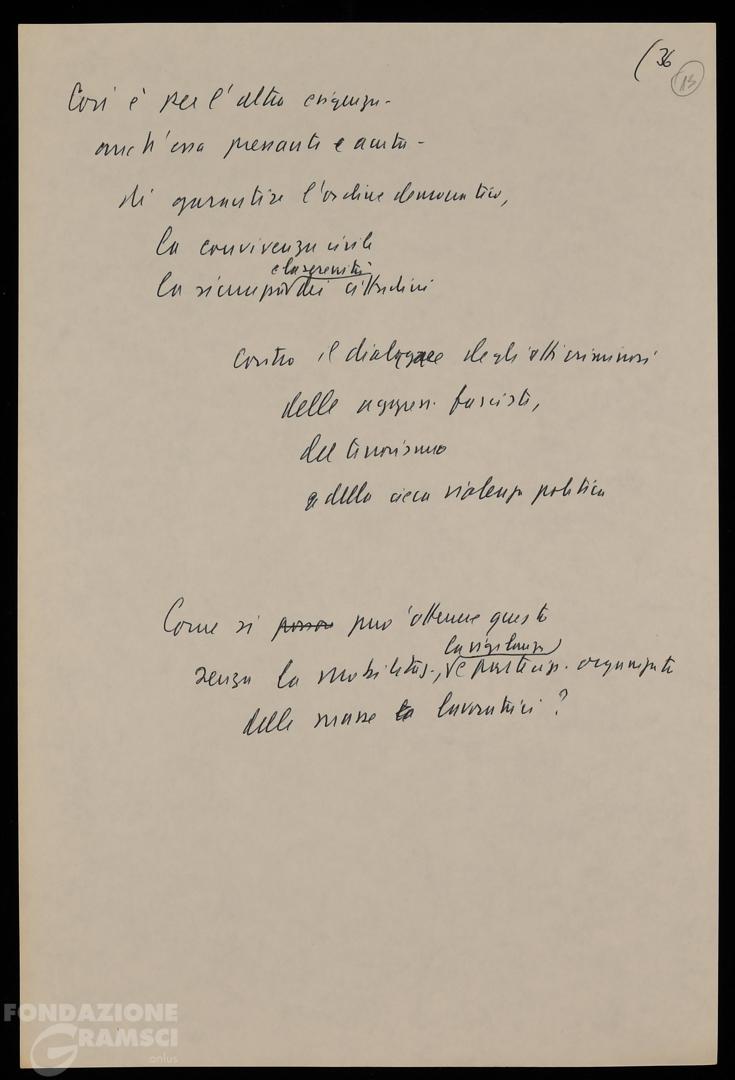 (36
13
Così è per l'altra esigenza -
anch'essa pressante e acuta -
di garantire l'ordine democratico,
la convivenza civile
e la serenità
la sicurezza dei cittadini
contro il dilagare degli atti criminosi
delle aggress. fasciste,
del terrorismo
e della cieca violenza politica
Come si possono può ottenere questo
la vigilanza
senza la mobilitaz., e partecip. organizzata
delle masse la lavoratrici?
FONDAZIONE
GRAMSCI
onlus